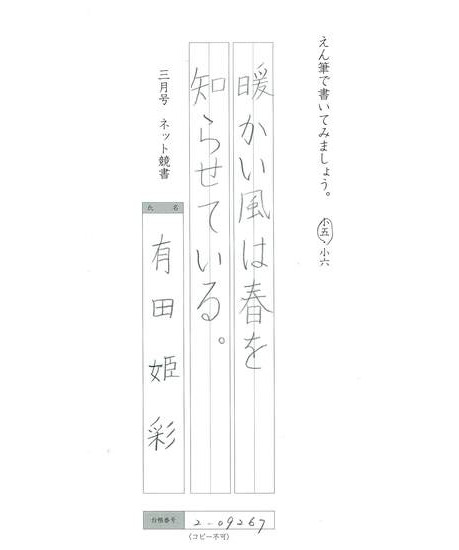 えん筆で書いてみましょう。
小五、小六
暖かい風は春を
知らせている。
三月号 ネット競書
氏 名
有田姫彩
合格番号
2-09267
(コピー不可)